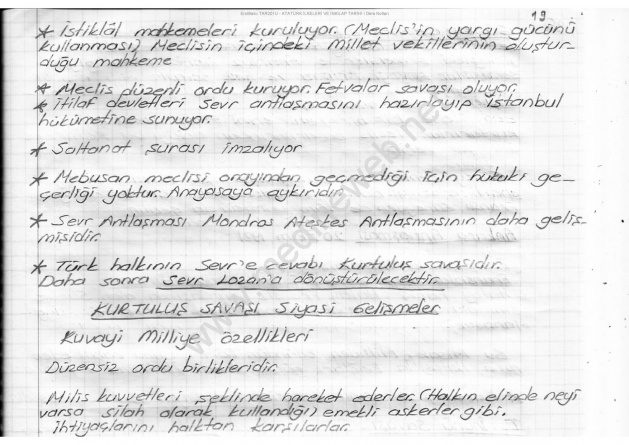 ATATÜRK İLKELERİ VE İNKILAP TARİHİ I Ders Notları
19
* İstiklâl mahkemeleri kuruluyor. (Meclis'in yargı gücünü
kullanması) Meclisin içindeki millet vekillerinin oluştur-
duğu mahkeme
* Meclis düzenli ordu kuruyor. Fetvalar savası oluyor.
* İtilaf devletleri sevr antlaşmasını hazırlayıp İstanbul
hükümetine sunuyor.
* Saltanat şurası imzalıyor
* Mebusan meclisi onayından geçmediği için hukuki ge-
çerliği yoktur. Anayasaya aykırıdır.
* Sevr Antlaşması Mondros Ateşkes Antlaşmasının daha geliş-
mişidir.
* Türk halkının Sevr'e cevabı Kurtuluş savaşıdır.
Daha sonra Sevr Lozan'a dönüştürülecektir.
KURTULUŞ SAVAŞI Siyasi Gelişmeler
Kuvayi Milliye özellikleri
Düzensiz ordu birlikleridir.
Milis kuvvetleri şeklinde hareket ederler. (Halkın elinde neyi
varsa silah olarak kullandığı) emekli askerler gibi.
ihtiyaçlarını halktan karşılarlar.